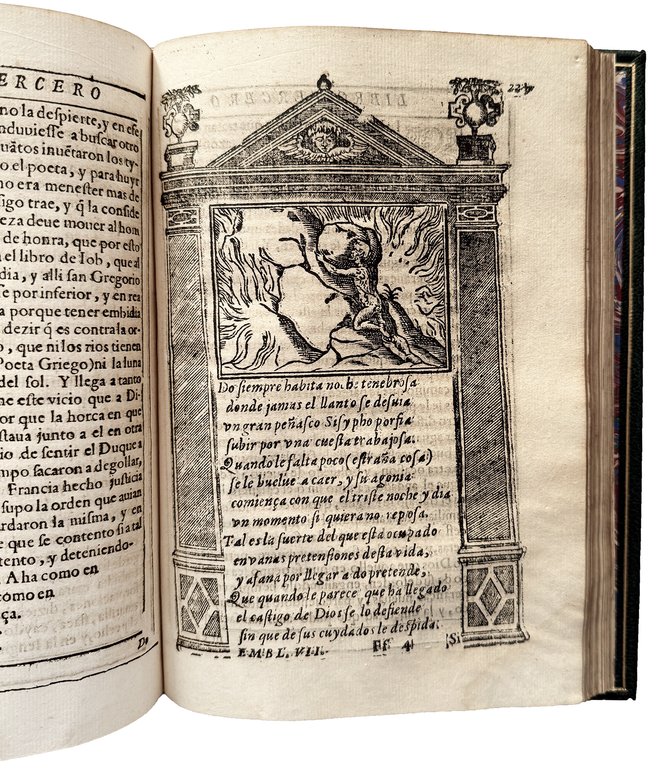 ERCERO
no la despierte, y en ese
nduuiesse a buscar otro
uãtos inuẽtaron los ty-
o el poeta, y para huyr
no era menester mas de
igo trae, y q̃ la conside
eza deue mouer al hom
de honra, que por esto
a el libro de Iob, que al
dia, y alli san Gregorio
e por inferior, y en rea
a porque tener embidia
dezir q̃ es contra la or-
o, que ni los rios tienen
Poeta Griego) ni la luna
del sol. Y llega a tanto
ne este vicio que a Di-
or que la horca en que
staua junto a el en otra
io de sentir el Duque a
mpo sacaron a degollar,
Francia hecho justicia
supo la orden que auian
rdaron la misma, y en
e que se contento si a tal
tento, y deteniendo-
. A ha como en
como en
ça.
Do
Do siempre habita noche tenebrosa
donde jamas el llanto se desuia
vn gran peñasco Sisypho porfia
subir por vna cuesta trabajosa.
Quando le falta poco (estraña cosa)
se le buelue a caer, y su agonia
comiença con que el triste noche y dia
vn momento si quiera no reposa.
Tal es la suerte del que esta ocupado
en vanas pretensiones desta vida,
y afana por llegar a do pretende,
Que quando le parece que ha llegado
el castigo de Dios se lo defiende
sin que de sus cuydados le despida.
EMBL. VII. Ff 4 Si